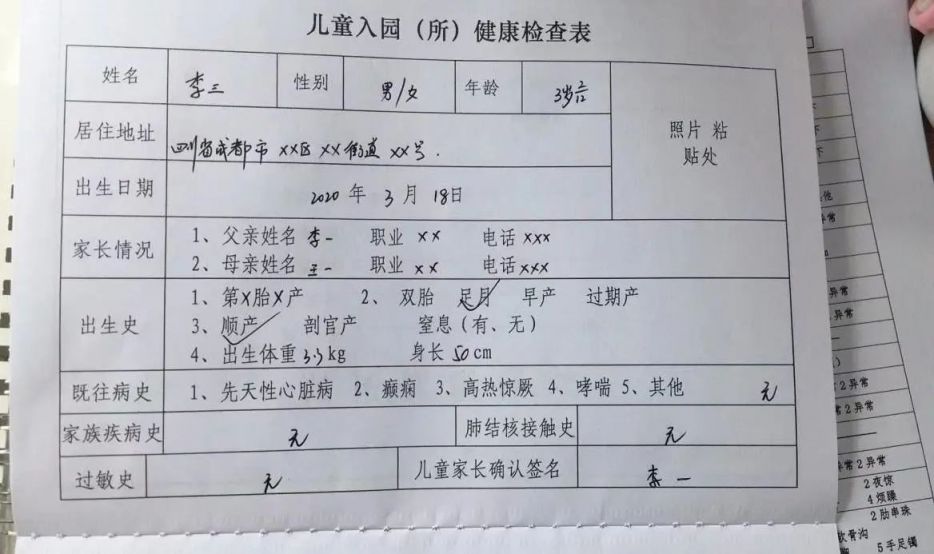 儿童入园（所）健康检查表
姓名 李三 性别 男/女 年龄 3岁
照片 粘
贴处
居住地址 四川省成都市 XX区 XX街道 XX号.
出生日期 2020 年 3 月 18日
家长情况
1、父亲姓名 李一 职业 XX 电话 XXX
2、母亲姓名 王一 职业 XX 电话 XXX
出生史
1、第X胎X产 2、 双胎 足月 早产 过期产
3、顺产 剖官产 窒息（有、无）
4、出生体重 3.3 kg 身长 50 cm
既往病史 1、先天性心脏病 2、癫痫 3、高热惊厥 4、哮喘 5、其他 无
家族疾病史 无 肺结核接触史 无
过敏史 无 儿童家长确认签名 李一
2异常
2异常
2异常
2夜惊
4烦躁
2肋串珠
5手足镯